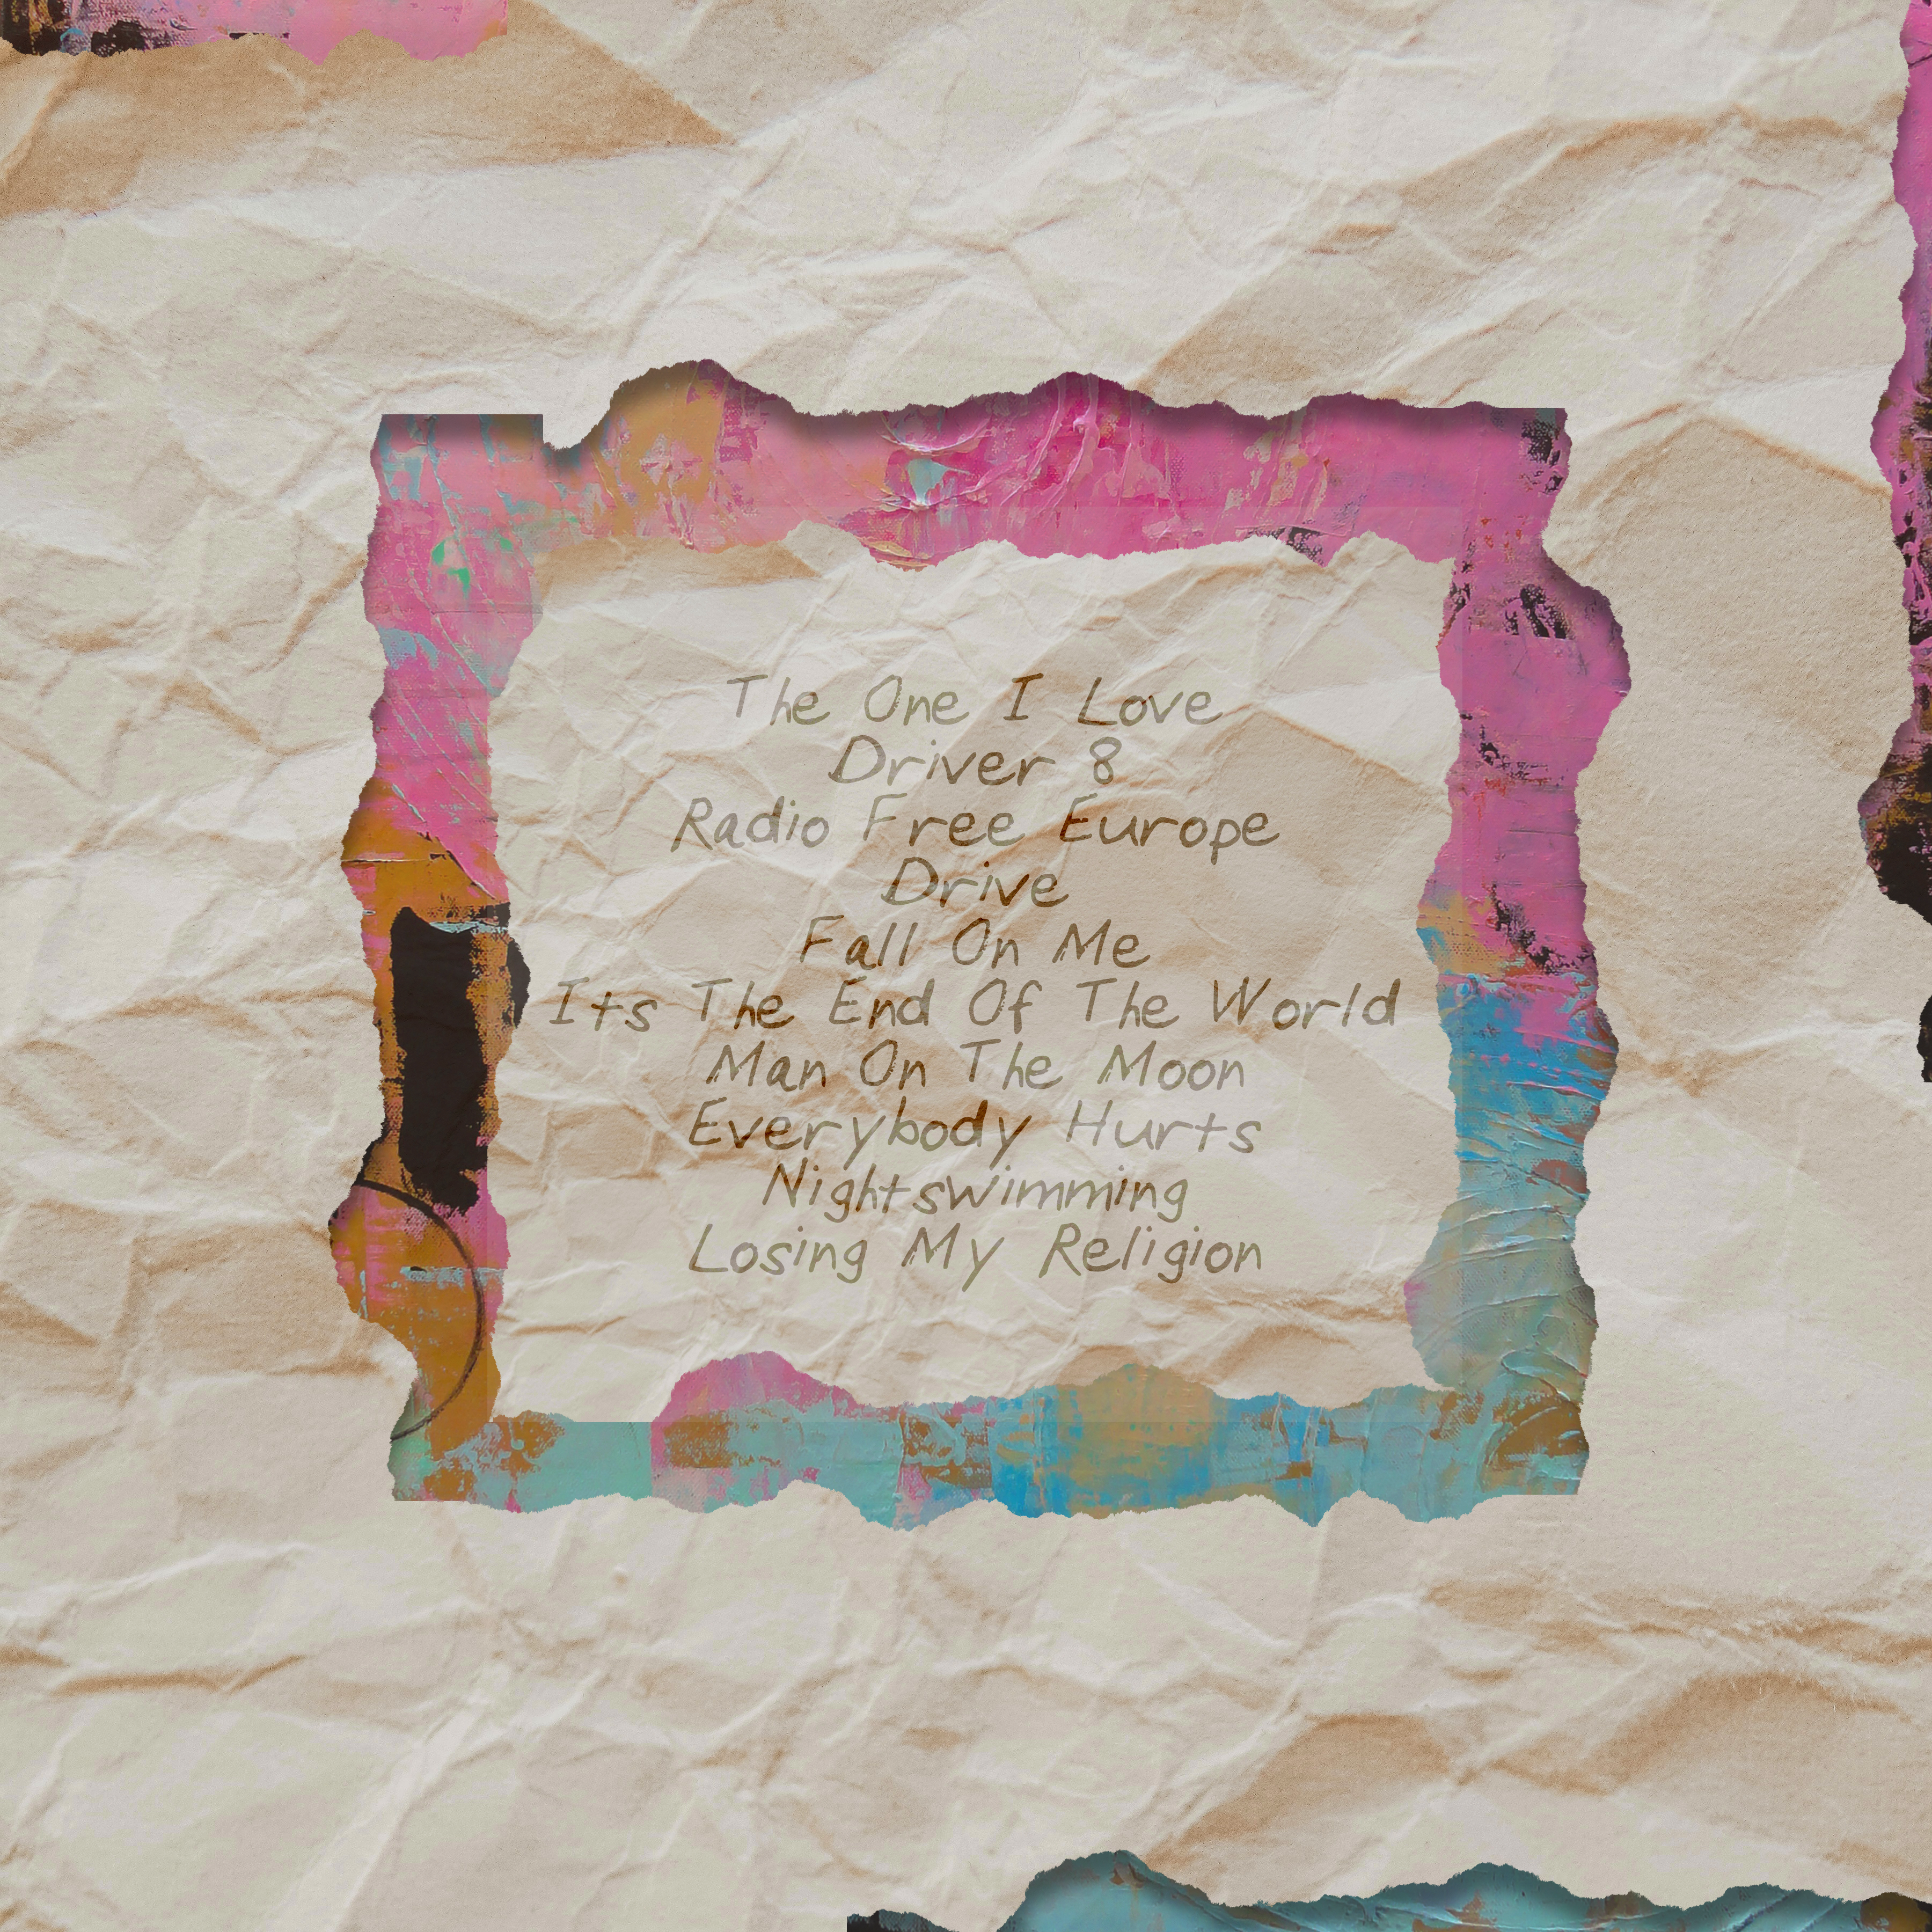 The One I Love
Driver 8
Radio Free Europe
Drive
Fall On Me
Its The End Of The World
Man On The Moon
Everybody Hurts
Nightswimming
Losing My Religion